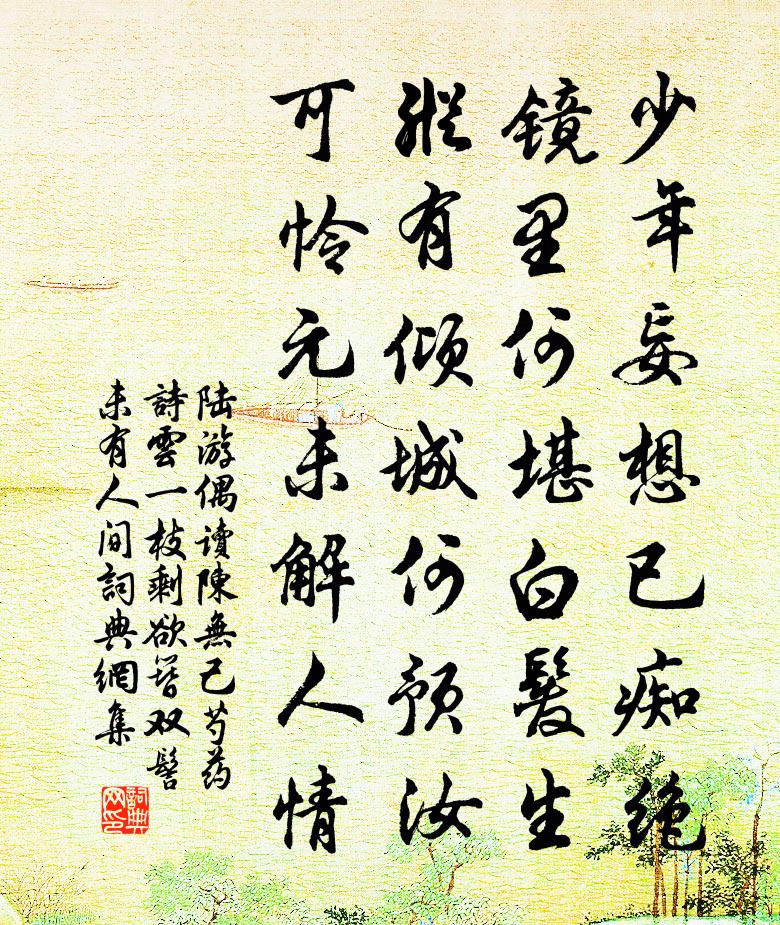 少年妄想已痴绝
镜里何堪白髮生
縱有倾城何预汝
可怜元未解人情
陆游偶读陳無己芍药
詩雲一枝剩欲簪双髻
未有人间詞典網集
詞典
网印